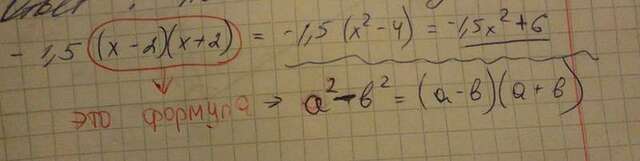 Ответ
- 1,5 (x - 2)(x + 2) = -1,5 (x² - 4) = -1,5x² + 6
это формула → a² - b² = (a - b)(a + b)